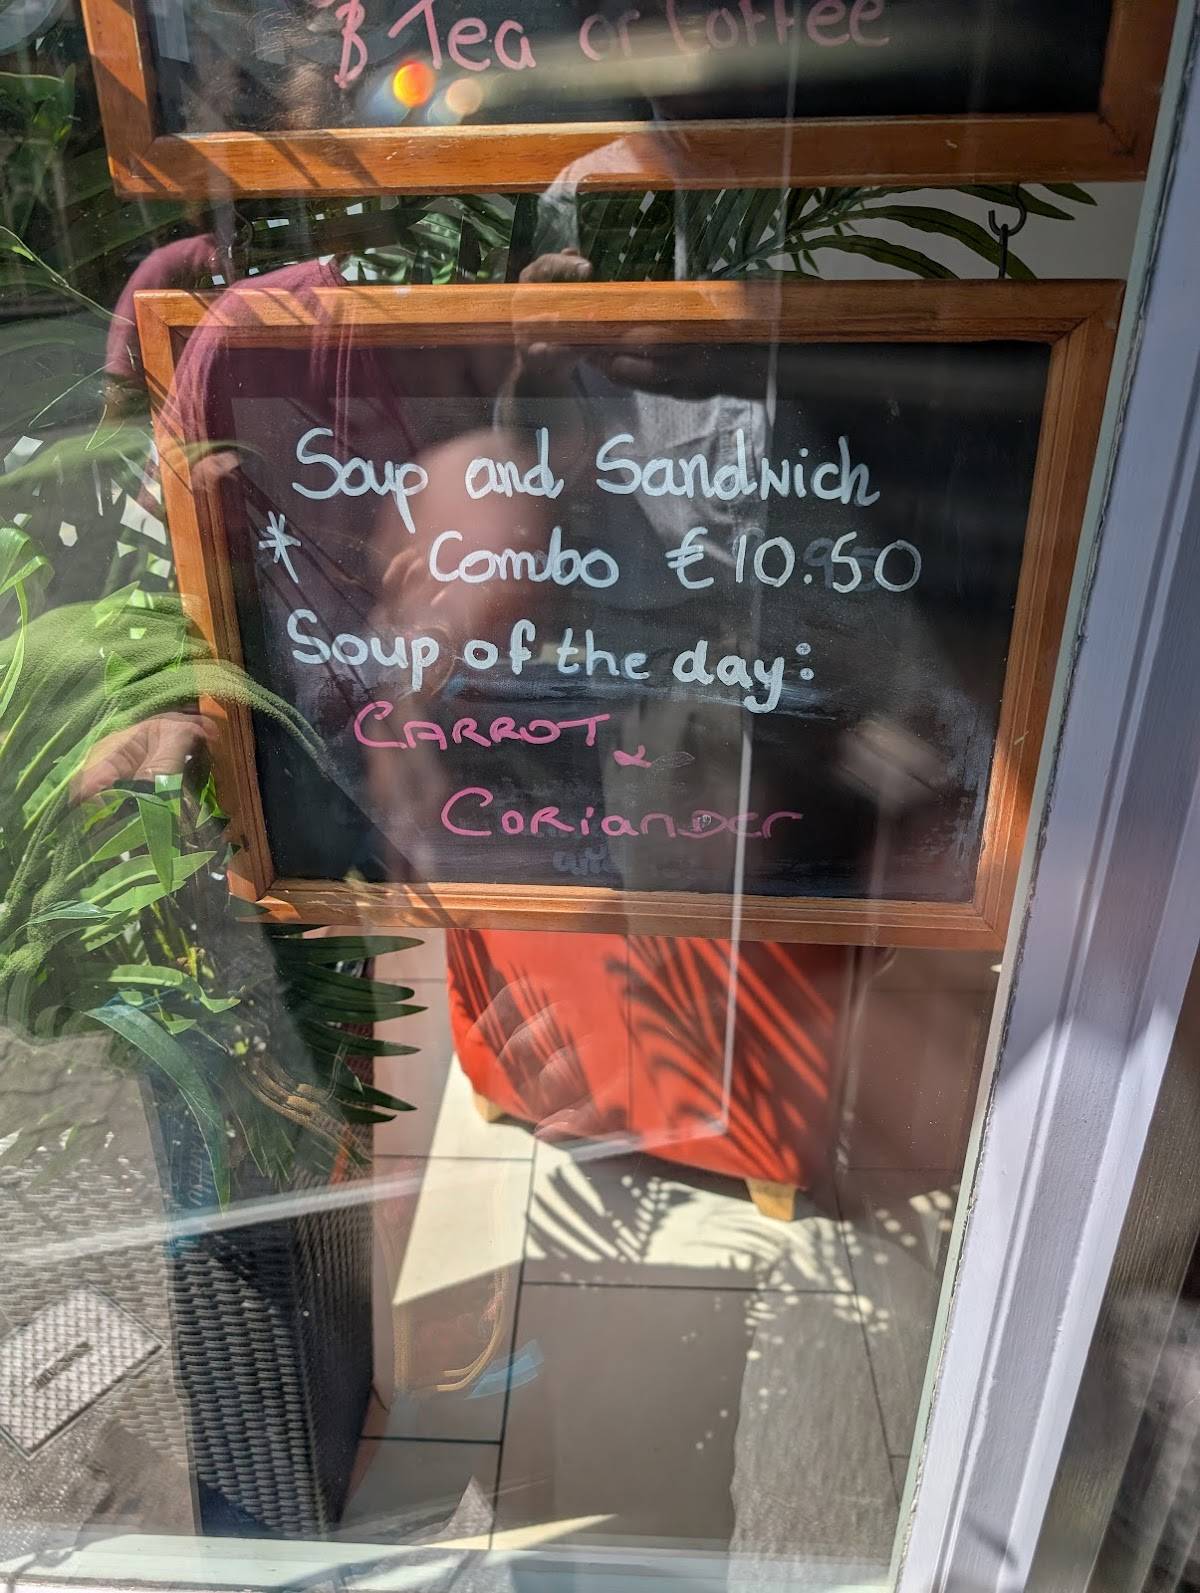 & Tea or Coffee
Soup and Sandwich
* Combo €10.50
Soup of the day:
CARROT &
CORiANDer